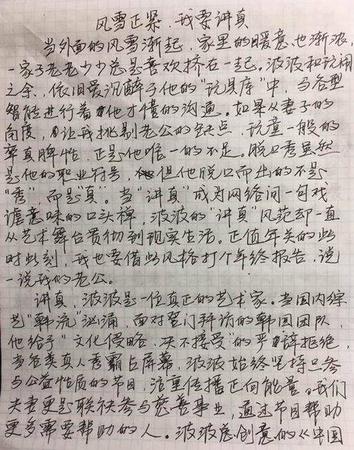 风雪正紧,我要讲真
当外面的风雪渐起,家里的暖意也渐浓,
一家子老老少少总是喜欢挤在一起。波波和我用
之余,依旧最沉醉于他的“玩具库”中,与各型
智能进行着只有他才懂的沟通。如果从妻子的
角度,让我挑剔老公的缺点,玩童一般的
率真脾性,正是他唯一的不足。脱口秀虽然
是他的职业符号,但他脱口而出的不是
“秀”而是“真”。当“讲真”成为网络间一句戏
谑意味的口头禅,波波的“讲真”风范却一直
从艺术舞台贯彻到现实生活。正值年关的此
时此刻,我也要借此风格打个年终报告,说
一说我的老公。
讲真,波波是一位真正的艺术家。当国内综
艺“韩流”汹涌,面对登门拜访的韩国团队,
他给予“文化侵略,决不接受”的严辞拒绝,
当各类真人秀霸占屏幕,波波始终坚持只参
与公益性质的节目,注重传播正向能量。我们
夫妻更是联袂参与慈善事业,通过节目帮助
更多需要帮助的人。波波总创意的《中国